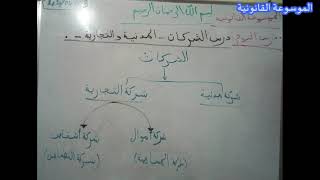 الموسوعة القانونية
بسم الله الرحمان الرحيم
الموسوعة القانونية
درس الشركات - المدنية والتجارية -
الشركات
شركة مدنية
شركة التجارية
شركة أموال
شركة أشخاص
(شركة المساهمة)
(شركة التضامن)